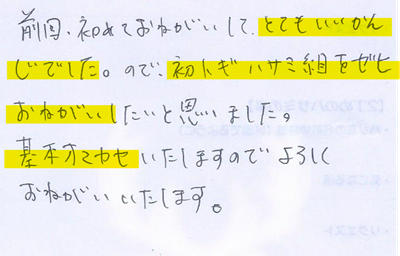 前回、初めておねがいして、とてもいいかん
じでした。ので、初トギハサミ組をゼヒ
おねがいしたいと思いました。
基本オマカセいたしますのでよろしく
おねがいいたします。